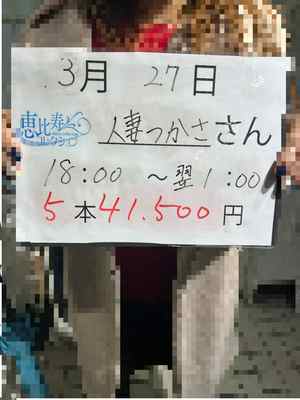 3月 27日
恵比寿
コレクション
人妻つかささん
18:00 ～翌1:00
5本41.500円